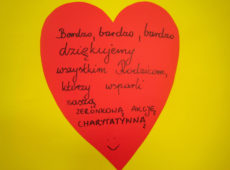 Bardzo, bardzo, bardzo
dziękujemy
wszystkim Rodzicom,
którzy wsparli
naszą
ŻERONKOWĄ AKCJĘ
CHARYTATYWNĄ